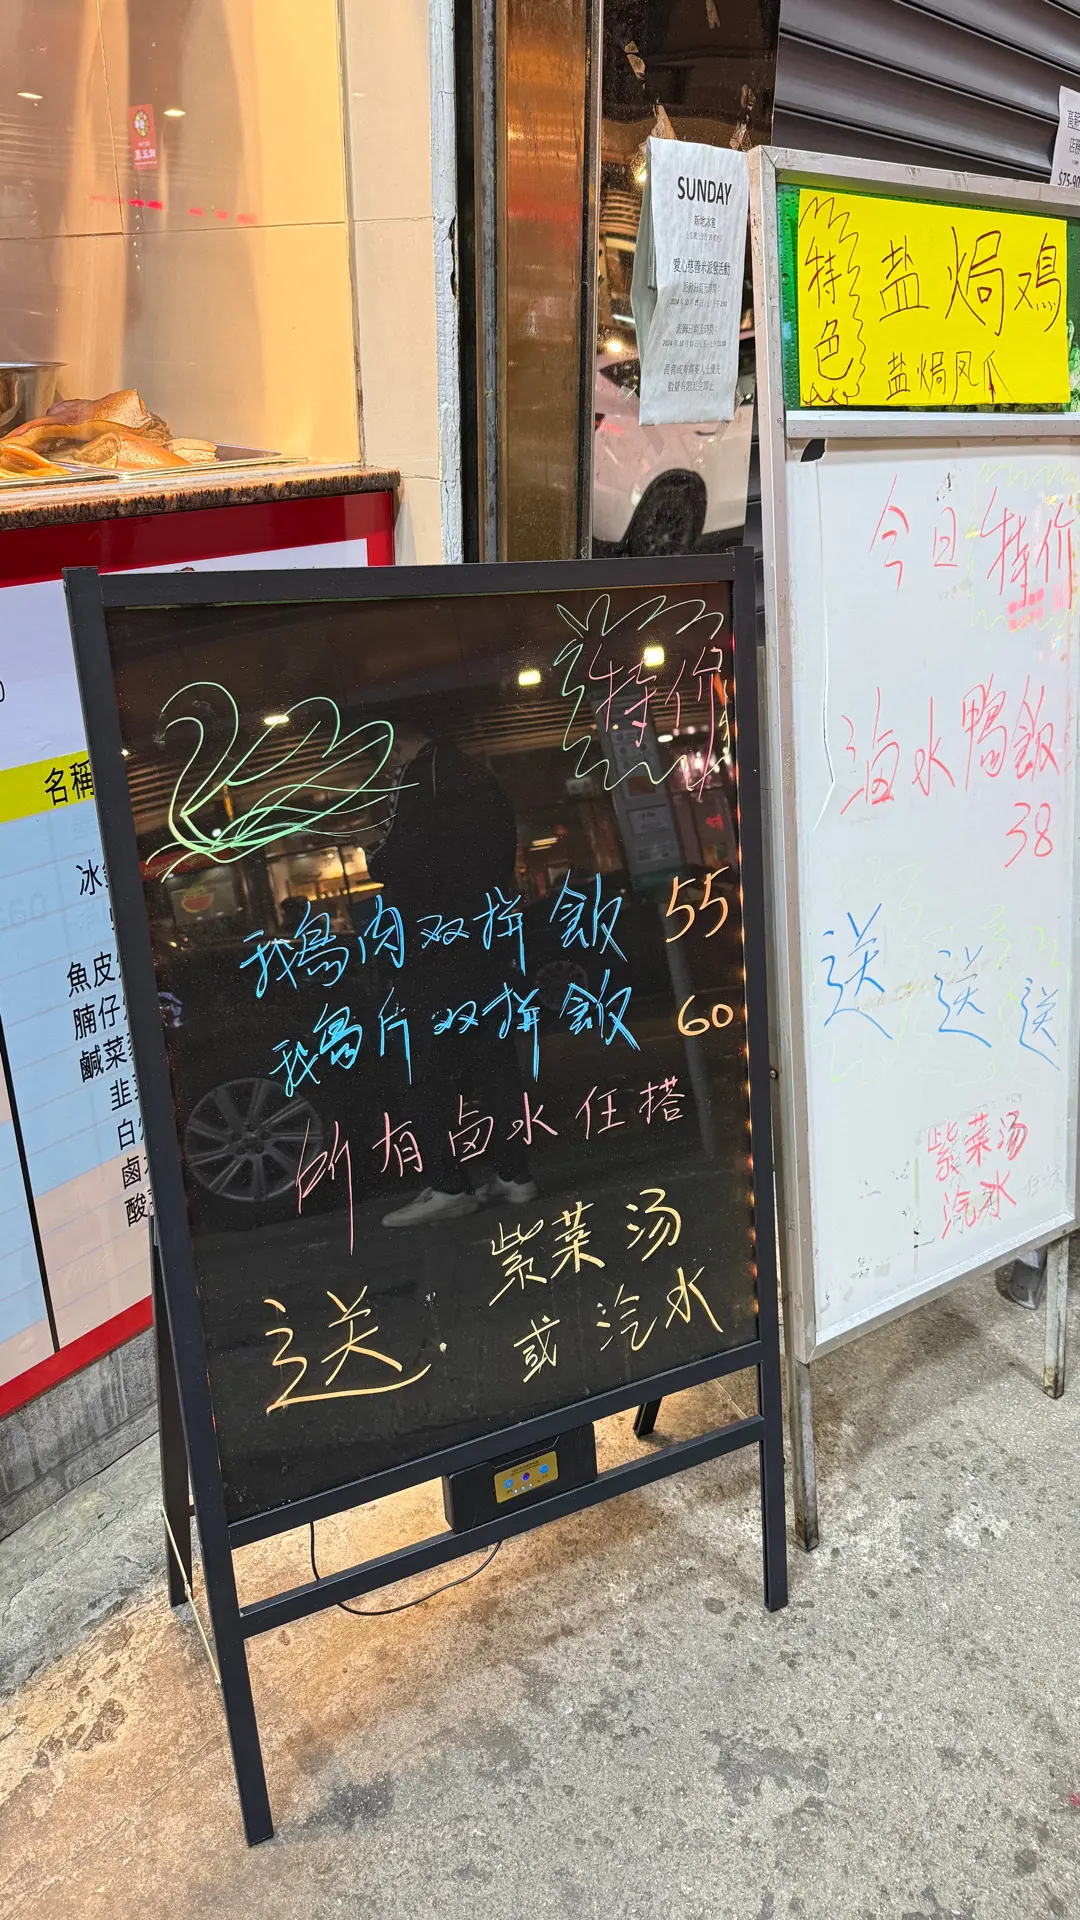 特价
鵝肉双拼飯 55
鵝片双拼飯 60
所有卤水任搭
送
紫菜汤
或汽水
特色
盐焗鸡
盐焗凤爪
今日特价
滷水鴨飯
38
送送送
紫菜汤
汽水
SUNDAY
新地冰室
愛心慈善米派發活動
名稱
冰
魚皮
腩仔
鹹菜
韭
白
鹵
酸
$75-90